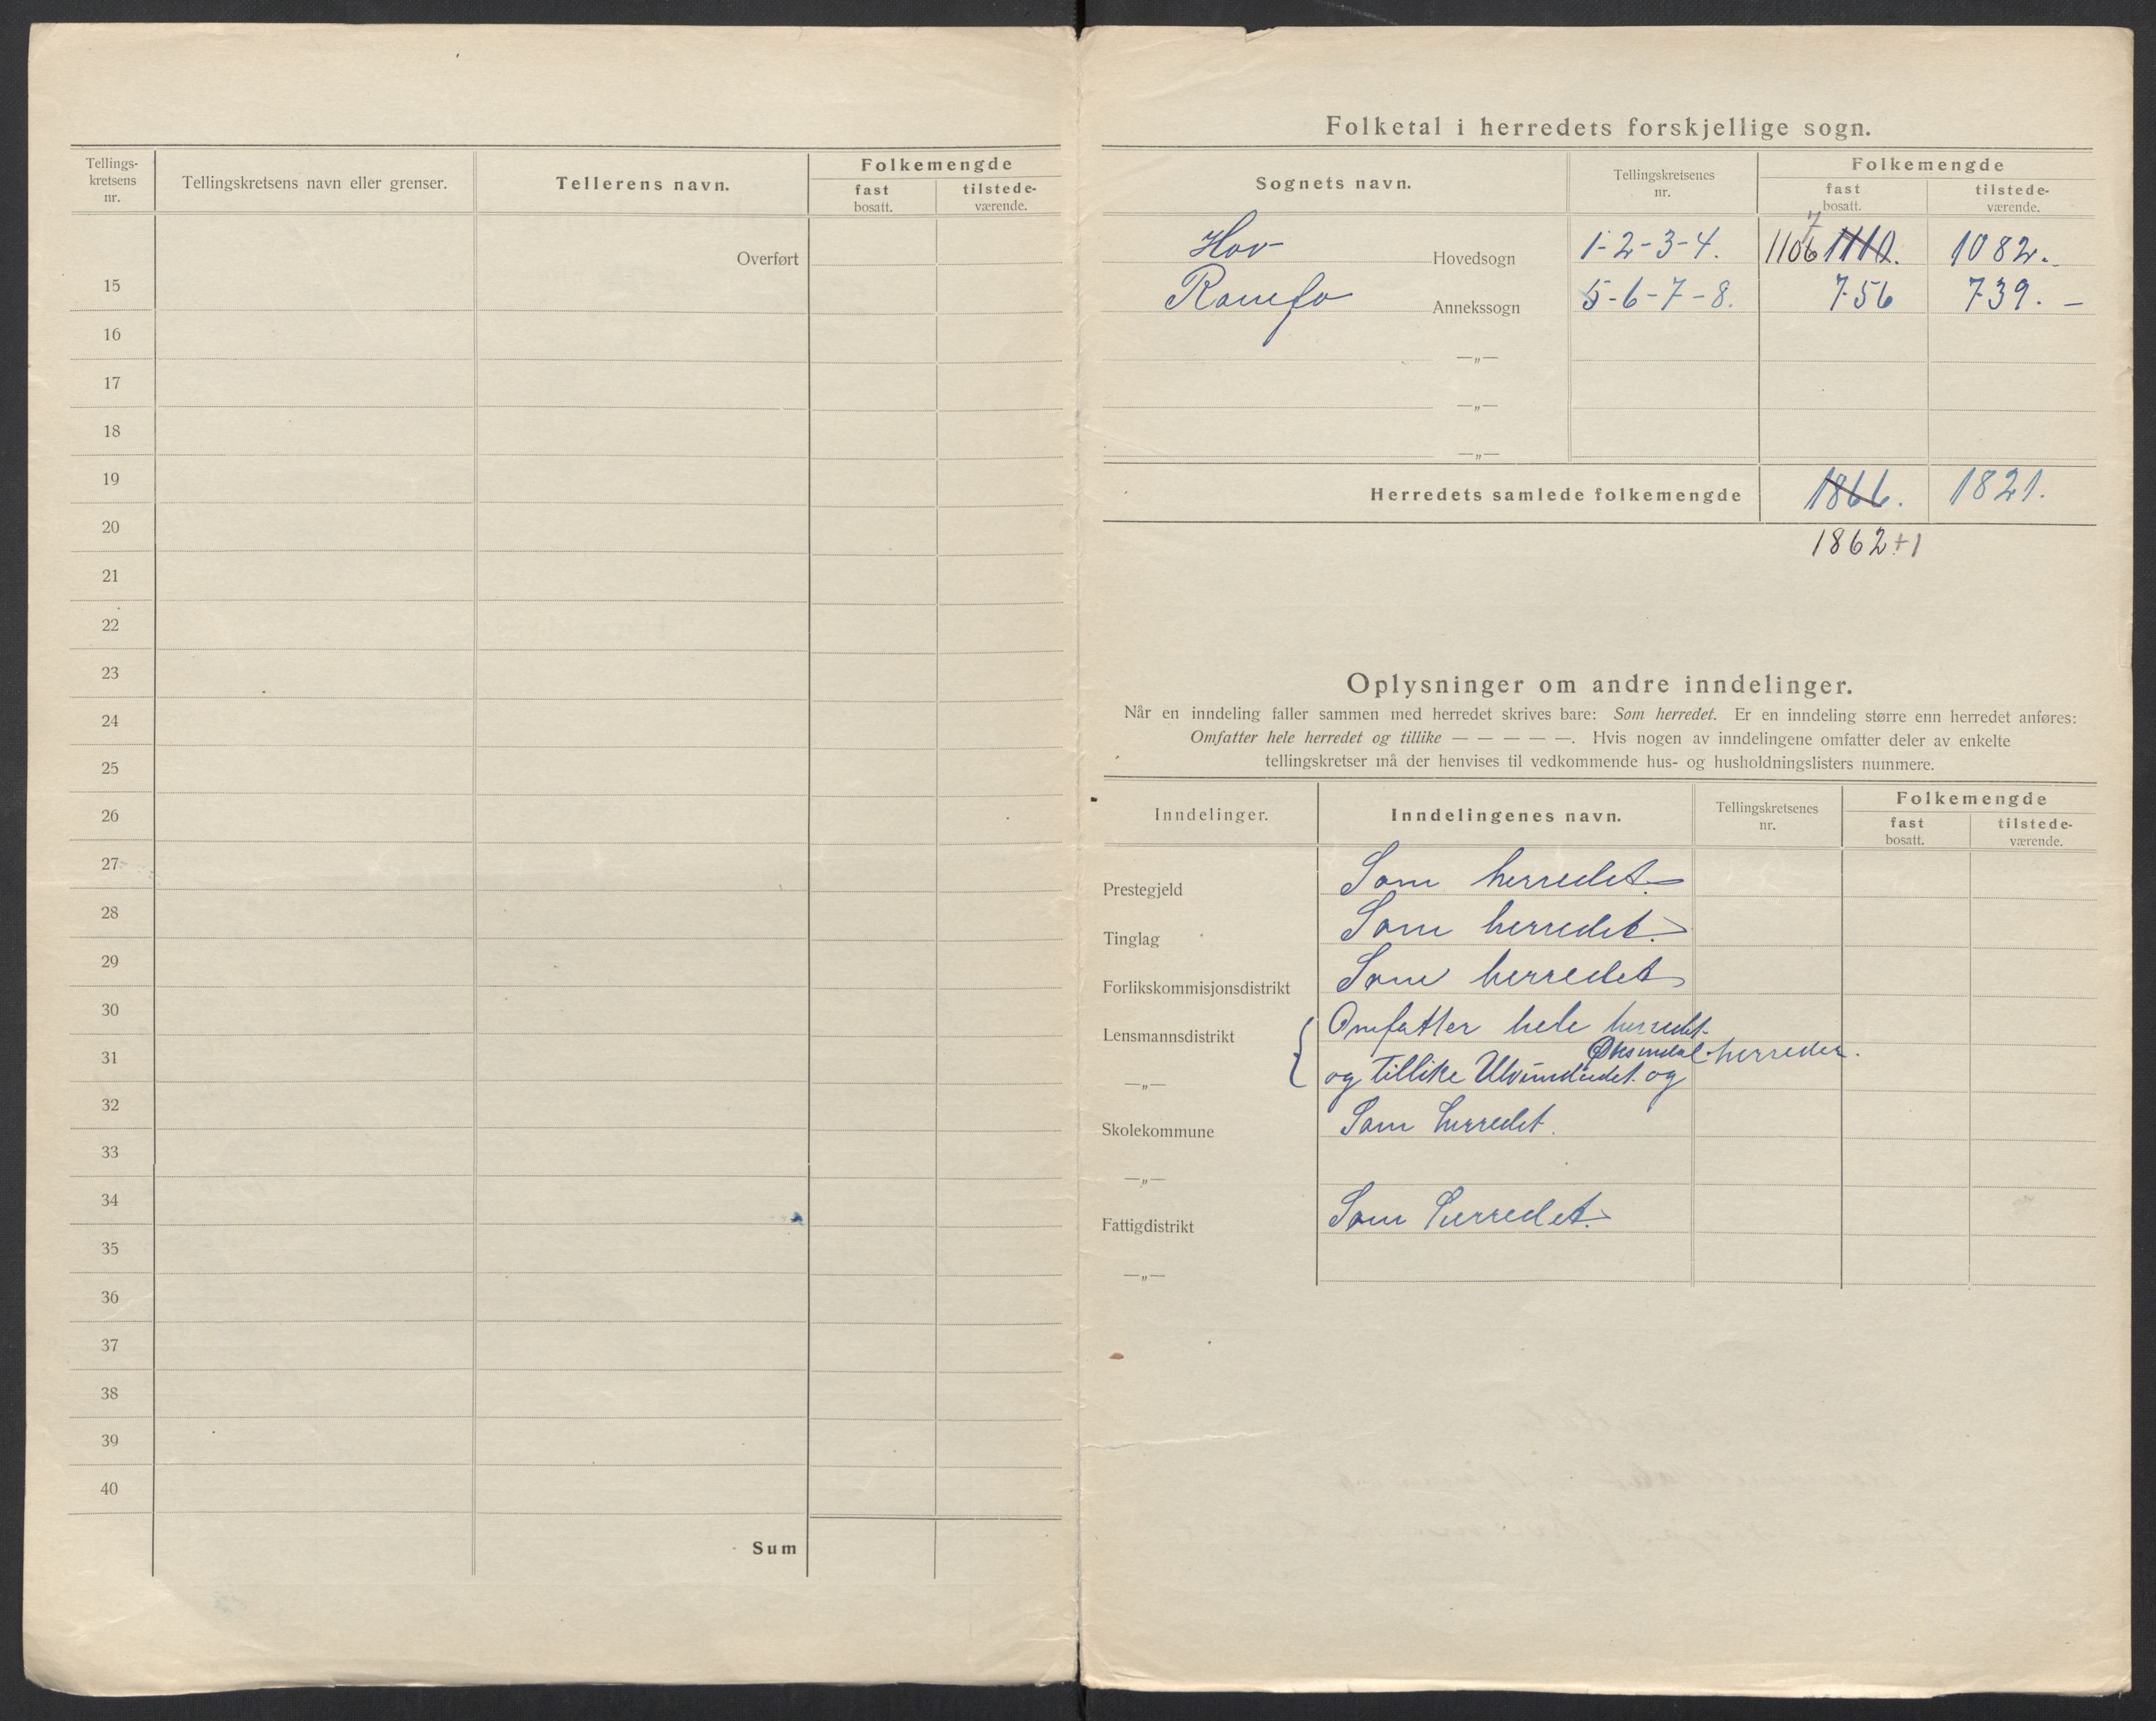 Tellings-
kretsens
nr.
Tellingskretsens navn eller grenser.
Tellerens navn.
Folkemengde
fast
bosatt.
tilstede-
værende.
Overført
15
16
17
18
19
20
21
22
23
24
25
26
27
28
29
30
31
32
33
34
35
36
37
38
39
40
Sum
Folketal i herredets forskjellige sogn.
Sognets navn.
Tellingskretsenes
nr.
Folkemengde
fast
bosatt.
tilstede-
værende.
7
Hov Hovedsogn 1-2-3-4. 1106 1110. 1082.
Annekssogn 5-6-7-8. 756 739. —
—„—
—„—
—„—
Herredets samlede folkemengde 1866. 1821.
1862+1
Oplysninger om andre inndelinger.
Når en inndeling faller sammen med herredet skrives bare: Som herredet. Er en inndeling større enn herredet anføres:
Omfatter hele herredet og tillike — — — — —. Hvis nogen av inndelingene omfatter deler av enkelte
tellingskretser må der henvises til vedkommende hus- og husholdningslisters nummere.
Inndelinger.
Inndelingenes navn.
Tellingskretsenes
nr.
Folkemengde
fast
bosatt.
tilstede-
værende.
Prestegjeld Som herredet.
Tinglag Som herredet.
Forlikskommisjonsdistrikt Som herredet
Lensmannsdistrikt Omfatter hele herredet
Øksendal herreder.
—„— og tillike Ulvundeidet og
Skolekommune Som herredet.
—„—
Fattigdistrikt Som herredet.
—„—